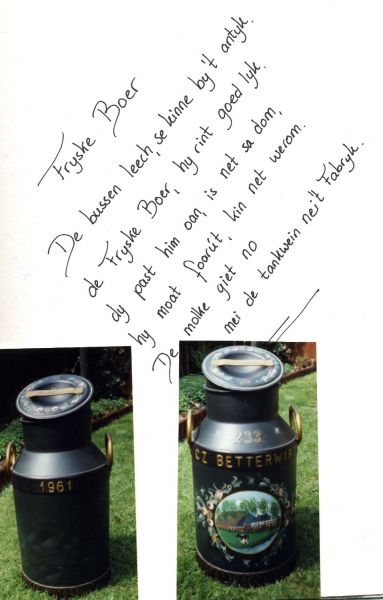 Fryske Boer
De bussen leech, se kinne by 't antyk.
de Fryske Boer, hy rint goed lyk.
dy past him oan, is net sa dom,
hy moat foarút, kin net werom.
De molke giet no
mei de tankwein nei 't Fabryk.
1961
233
CZ BETTERWIR